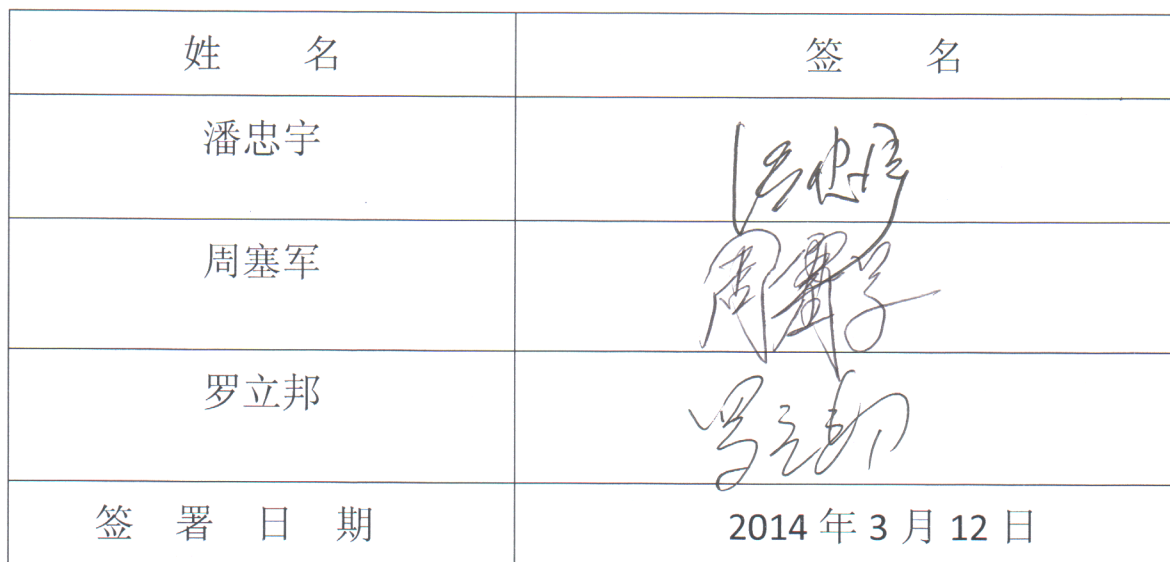 姓 名 签 名
潘忠宇 潘忠宇
周塞军 周塞军
罗立邦 罗立邦
签 署 日 期 2014 年 3 月 12 日